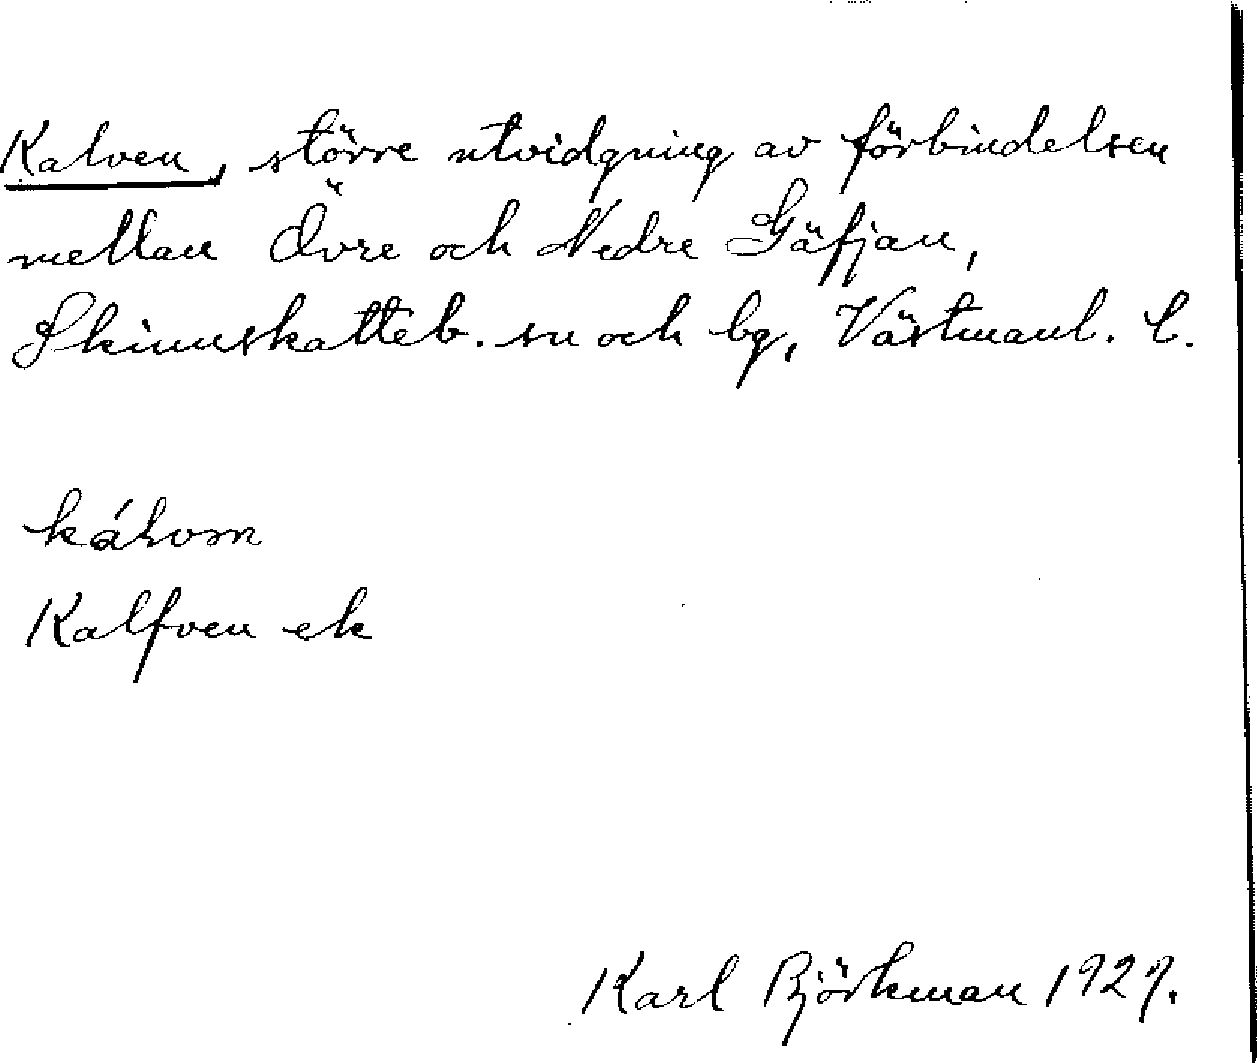 Kalven, större utvidgning av förbindelsen
mellan Övre och Nedre Gäfjan,
Skinnskatteb. sn och bg, Västmanl. l.
Kalfven ek
Karl Björkman 1927.